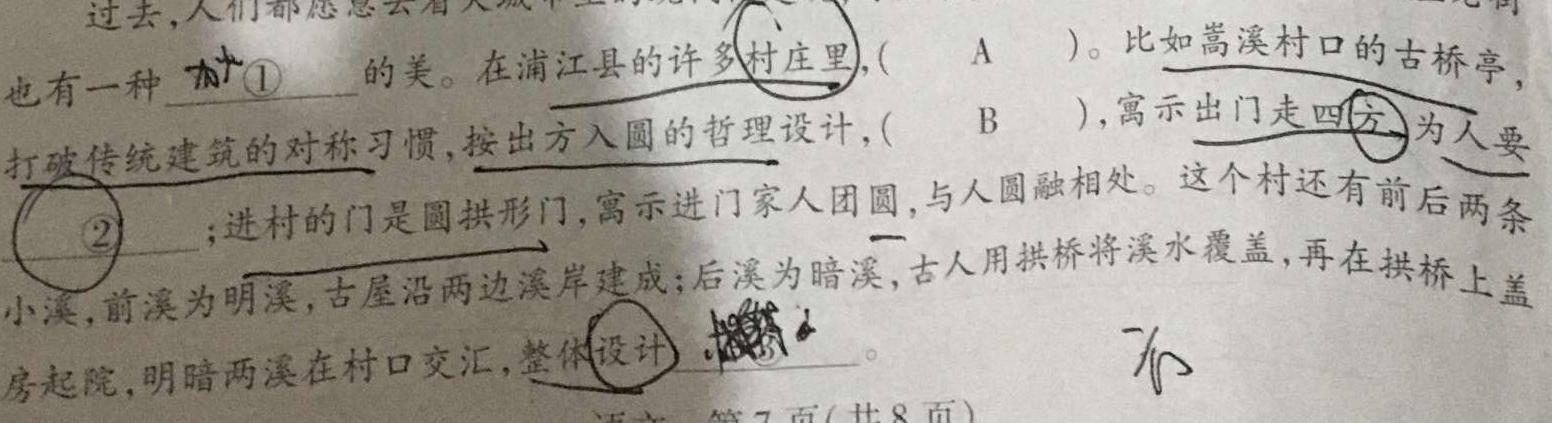 过去,人们都愿意去看大城市里的
也有一种 ① 的美。在浦江县的许多村庄里,( A )。比如嵩溪村口的古桥亭,
打破传统建筑的对称习惯,按出方入圆的哲理设计,( B ),寓示出门走四方为人要
② ;进村的门是圆拱形门,寓示进门家人团圆,与人圆融相处。这个村还有前后两条
小溪,前溪为明溪,古屋沿两边溪岸建成;后溪为暗溪,古人用拱桥将溪水覆盖,再在拱桥上盖
房起院,明暗两溪在村口交汇,整体设计 ③ 。
语文 第7页(共8页)